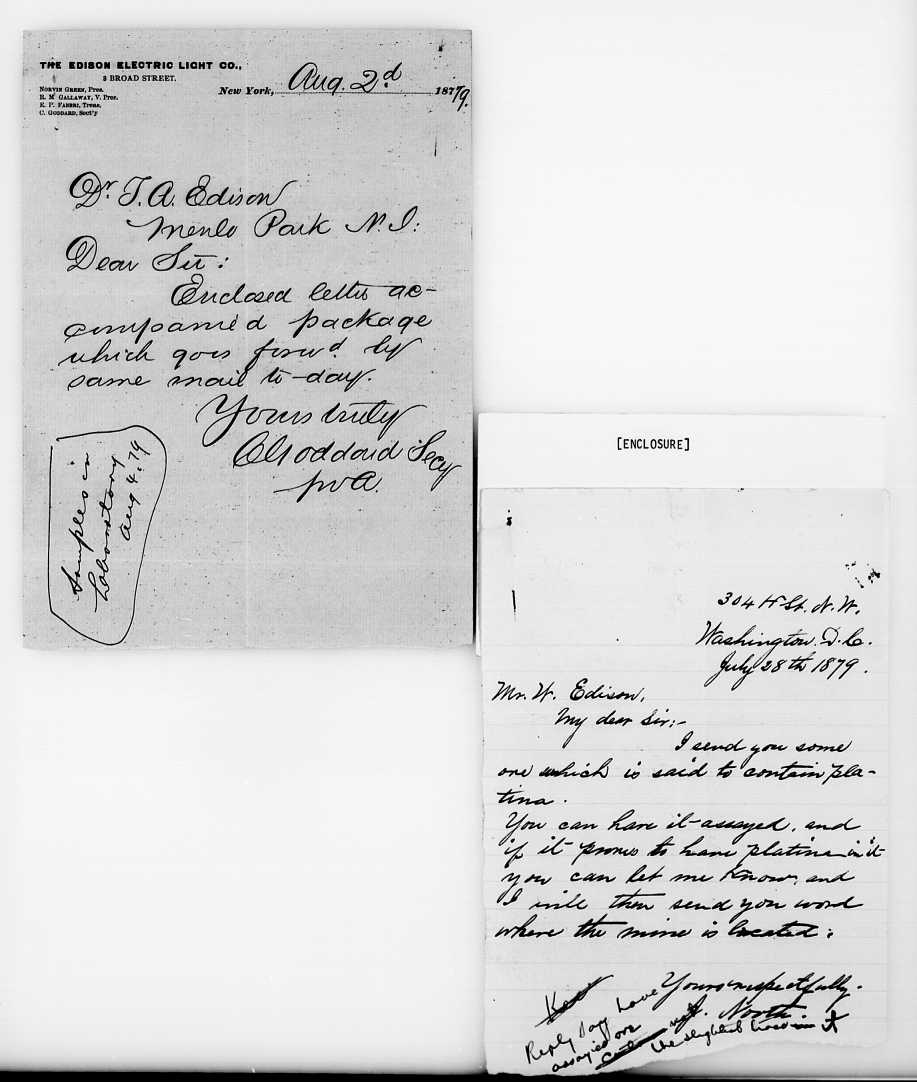 THE EDISON ELECTRIC LIGHT CO.,
3 BROAD STREET.
NORVIN GREEN, Pres.
R. M. GALLAWAY, V. Pres.
E. P. FABBRI, Treas.
C. GODDARD, Sect'y
New York, Aug. 2d 1879.
Dr. T. A. Edison
Menlo Park N. J:
Dear Sir:
Enclosed letter ac-
companied package
which goes forwd. by
same mail to-day.
Yours truly
C Goddard Secy
pr A.
Samples in
Laboratory
Aug 4. 79
[ENCLOSURE]
304 H St. N. W.
Washington. D. C.
July 28th 1879.
Mr. W. Edison,
My dear Sir:-
I send you some
ore which is said to contain pla-
tina.
You can have it assayed, and
if it proves to have platina in it
you can let me know, and
I will then send you word
where the mine is located.
Yours respectfully.
J. North
Reply Say have
assayed ore
not
the slightest trace in it